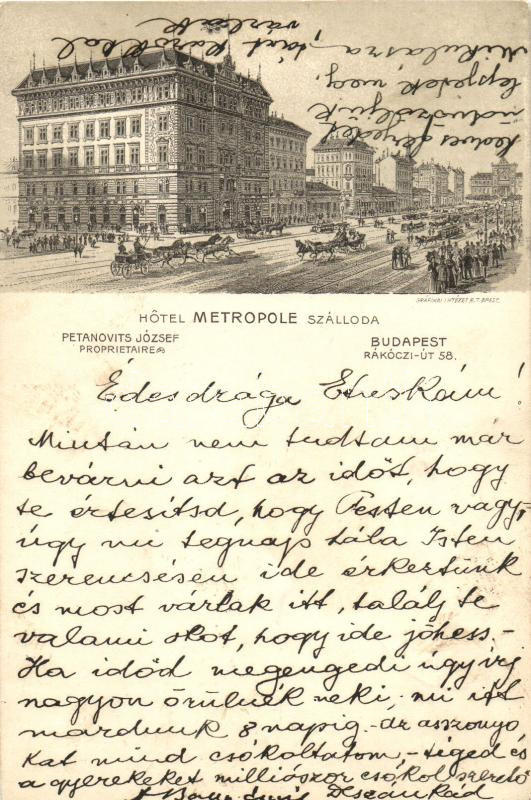 GRAFIKAI INTÉZET R.T. BPEST.
HÔTEL METROPOLE SZÁLLODA
PETANOVITS JÓZSEF
PROPRIETAIRE
BUDAPEST
RÁKÓCZI-ÚT 58.
Édesdrága Etuskám!
Miután nem tudtam már
bevárni azt az időt, hogy
te értesítsd, hogy Pesten vagy,
úgy mi tegnap hála Isten
szerencsésen ide érkeztünk
és most várlak itt, találj te
valami okot, hogy ide jöhess.-
Ha időd megengedi úgy írj
nagyon örülnék neki, mi itt
maradunk 8 napig.- az asszonyo
kat mind csókoltatom,- téged és
a gyerekeket milliószor csókol szerető
kedves
meg,
Mikulásra,
várlak